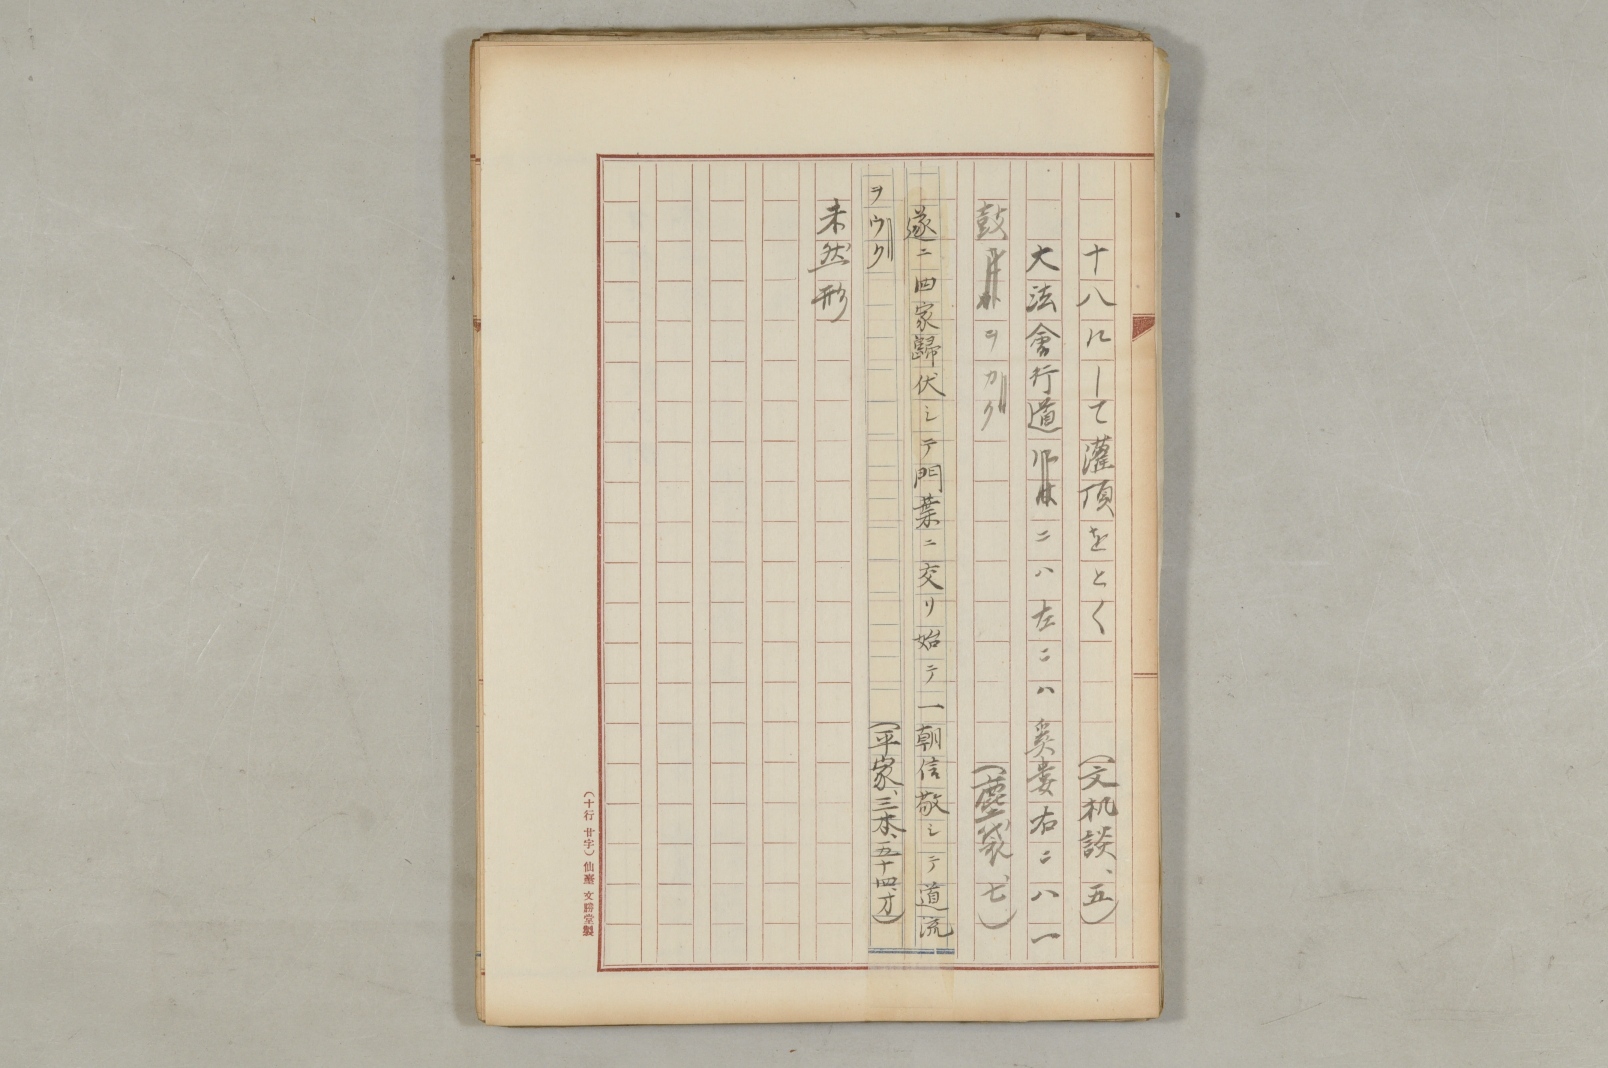 十八にして灌頂をとく　（文机談、五）
大法會行道ニハ左ニハ奚婁右ニハ一
鼓ヲカク　（塵袋、七）
遂ニ四家歸伏シテ門葉ニ交リ始テ一朝信敬シテ道流
ヲウク　（平家、三本、五十四、オ）
未然形
（十行 廿字）仙臺 文勝堂製